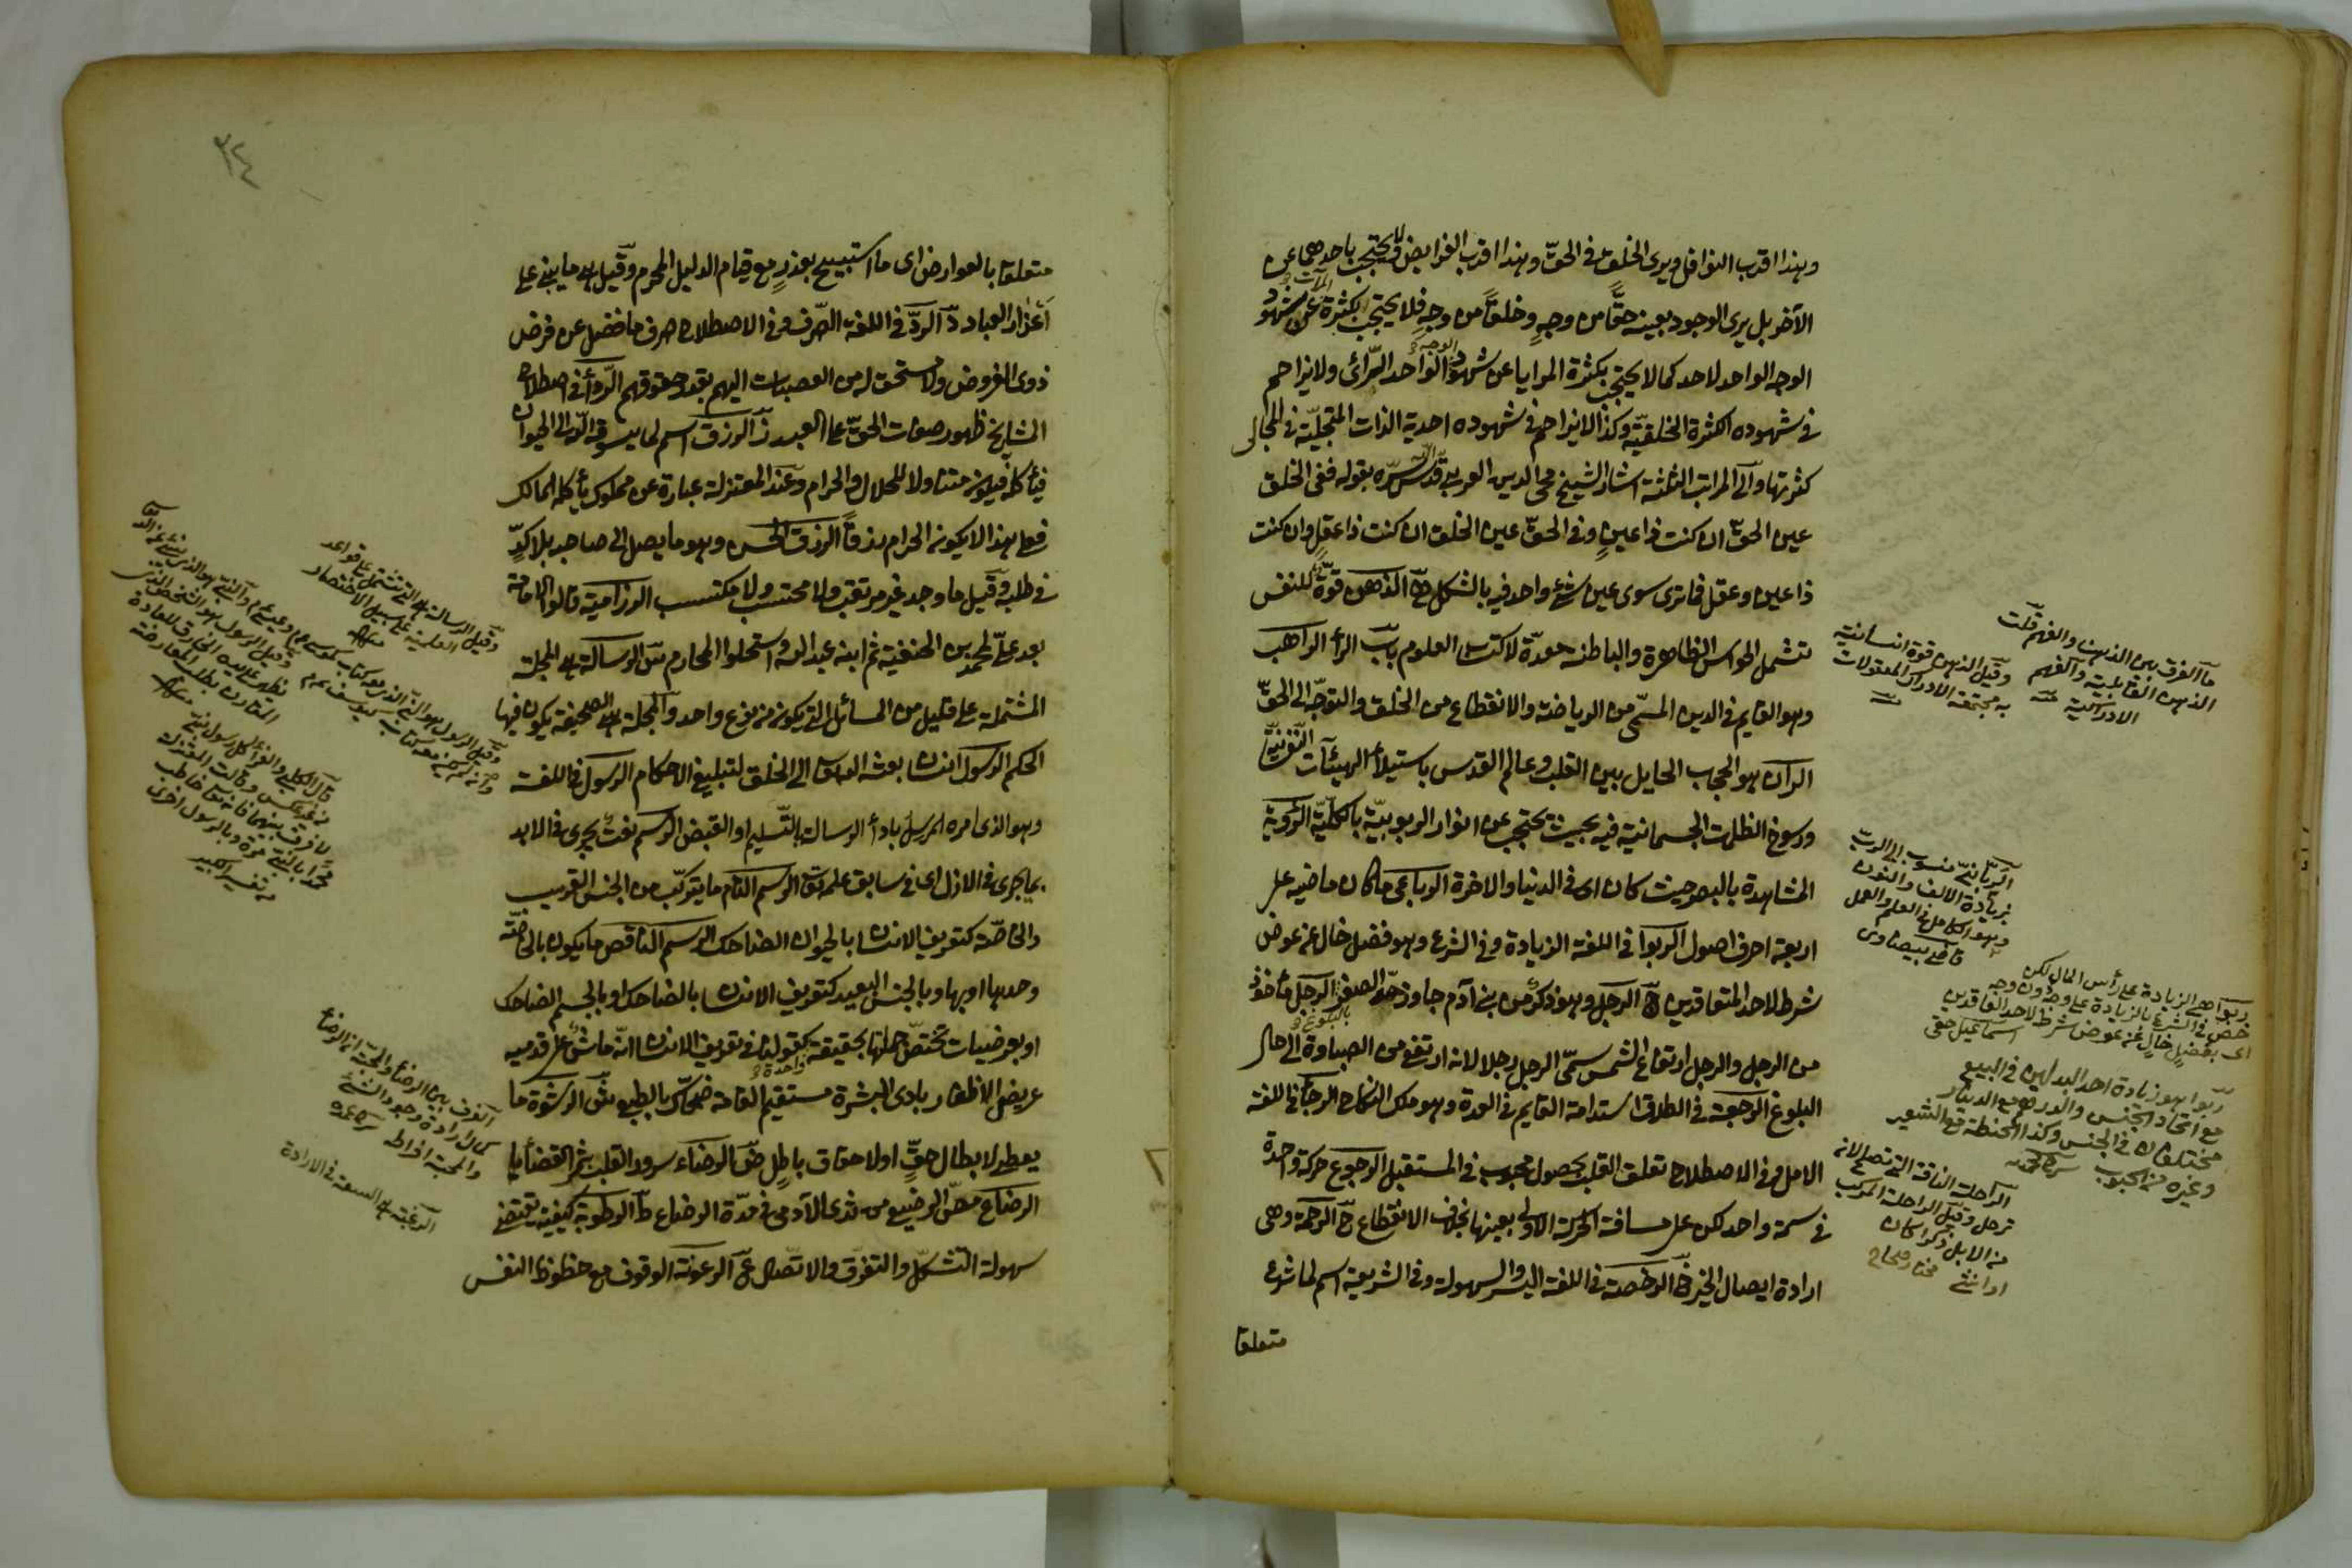 وهذا اقرب النوافل ويرى الخلق في الحقّ وهذا اقرب الفرايض لا يحتجب باحدهما عن
الآخر بل يرى الوجود بعينه حقًّا من وجهٍ وخلقًا من وجهٍ فلا يحتجب بكثرة المرآت عن شهود
الوجه الواحد لاحد كما لا يحتجب بكثرة المرايا عن شهود الوجه الواحد الرّائى ولا يزاحم
في شهوده الكثرة الخلقيّة وكذا لا يزاحم في شهوده احدية الذات المتجليّة في المجالى
كثرتها وآلى المراتب الثلثة اشار الشيخ محى الدين العربي قدّس الله سرّه بقوله ففى الخلق
عين الحقّ ان كنت ذا عينٍ وفى الحقّ عين الخلق ان كنت ذا عقلٍ وان كنت
ذا عين وعقل فما ترى سوى عين شئ واحد فيه بالشكل الذهن قوّة للنفس
تشمل الحواس الظاهرة والباطنة معدّة لاكتساب العلوم باب الرأ الراهب
وهو القايم في الدين المسيحى من الرياضة والانقطاع من الخلق والتوجّه الى الحقّ
الران هو الحجاب الحايل بين القلب وعالم القدس باستيلاء الهيئآت النفسانيّة
ورسوخ الظلمات الجسمانية فيه بحيث يحتجب عن انوار الربوبيّة بالكليّة الرؤية
المشاهدة بالبصر حيث كان اى في الدنيا والاخرة الرباعى ما كان ماضيه على
اربعة احرف اصول الربوا في اللغة الزيادة وفى الشرع وهو فضل خال عن عوض
شرط لاحد المتعاقدين الرجل وهو ذكر من بنى آدم جاوز حدّ الصغر الرجل مأخوذ
من الرجل والرجل ارتفاع الشمس سمّى الرجل رجلا لانه ارتفع من الصباوة الى حال
البلوغ الرجعة في الطلاق استدامة القايم في العدة وهو ملك النكاح الرجأ في اللغة
الامل وفى الاصطلاح تعلق القلب بحصول محبوب في المستقبل الرجوع حركة واحدة
في سمة واحد لكن على مسافة الحركة الاولى بعينها بخلاف الانقطاع الرحمة وهى
ارادة ايصال الخير الرخصة في اللغة اليسر والسهولة وفى الشريعة اسم لما شرع
متعلقا
ما الفرق بين الذهن والفهم قلت
الذهن القابلية والفهم
الادراكية
وقيل الذهن قوة انسانية
به مجتمعة الادراك المعقولات
الربّانيّ منسوب الى الربّ
بزيادة الالف والنون
وهو الكامل في العلم والعمل
قاضى بيضاوى
ربوا هى الزيادة على رأس المال لكن
خصّ في الشرع بالزيادة على وجه دون وجه
اى بفضل خال عن عوض شرط لاحد العاقدين
اسماعيل حقى
ربوا هو زيادة احد البدلين في البيع
مع اتحاد الجنس والدرهم مع الدينار
مختلفان في الجنس وكذا الحنطة مع الشعير
وغيره من الحبوب
الراحلة الناقة التى تصلح لان
ترحل وقيل الراحلة المركب
من الابل ذكرا كان
او انثى مختار صحاح
متعلقا بالعوارض اى ما استبيح بعذرٍ مع قيام الدليل المحرم وقيل هى ما يبنى على
اَعْذار العباد الردّ في اللغة الصّرف وفى الاصطلاح صرف ما فضل عن فرض
ذوى الفروض ولا مستحق له من العصبات اليهم بقدر حقوقهم الرّداء في اصطلاح
المشايخ ظهور صفات الحقّ على العبد الرزق اسم لما يسوقه الله الى الحيوان
فيأكله فيكون متناولا للحلال والحرام وعند المعتزلة عبارة عن مملوك يأكله المالك
فعلى هذا لا يكون الحرام رزقًا الرزق الحسن وهو ما يصل الى صاحبه بلا كدٍّ
في طلبه وقيل ما وجد غير مرتقب ولا محتسب ولا مكتسب الرزامية قالوا الامامة
بعد علىّ لمحمد بن الحنفية ثم ابنه عبد الله واستحلوا المحارم الرسالة هى المجلة
المشتملة على قليل من المسائل التى تكون من نوع واحد والمجلة هى الصحيفة يكون فيها
الحكم الرسول انسان بعثه الله تعالى الى الخلق لتبليغ الاحكام الرسول في اللغة
وهو الذى امره المرسل بادأ الرسالة بالتّسليم او القبض الرسم نعت يجرى في الابد
بما جرى في الازل اى في سابق علمه تعالى الرسم التام ما يتركّب من الجنس القريب
والخاصّة كتعريف الانسان بالحيوان الضاحك الرسم الناقص ما يكون بالخاصّة
وحدها او بها وبالجنس البعيد كتعريف الانسان بالضاحك او بالجسم الضاحك
او بعرضيات تختصّ جملتها بحقيقة واحدة كقولنا في تعريف الانسان انّه ماش على قدميه
عريض الاظفار بادى البشرة مستقيم القامة ضحّاك بالطبع الرشوة ما
يعطى لابطال حقٍّ اولا حقاق باطلٍ الرضاء سرور القلب بمرّ القضأ
الرضاع مصّ الرضيع من ثدى الآدمى في مدّة الرضاع الرطوبة كيفية تقتضى
سهولة التشكّل والتفرّق والاتّصال الرعونة الوقوف مع حظوظ النفس
وقيل الرسالة هى التى تشتمل على قواعد
العلمية على سبيل الاختصار
قال الكلبى والفرّا كل رسول نبىّ
من غير عكس وقالت المعتزلة
لا فرق بينهما فانه تعالى خاطب
محمّدا بالنبىّ مرة وبالرسول اخرى
من تفسير الكبير
الفرق بين الرضا والمحبّة انّ الرضا
كمال ارادة وجود الشئ
والمحبة افراطه
الرغبة هى السعة في الارادة